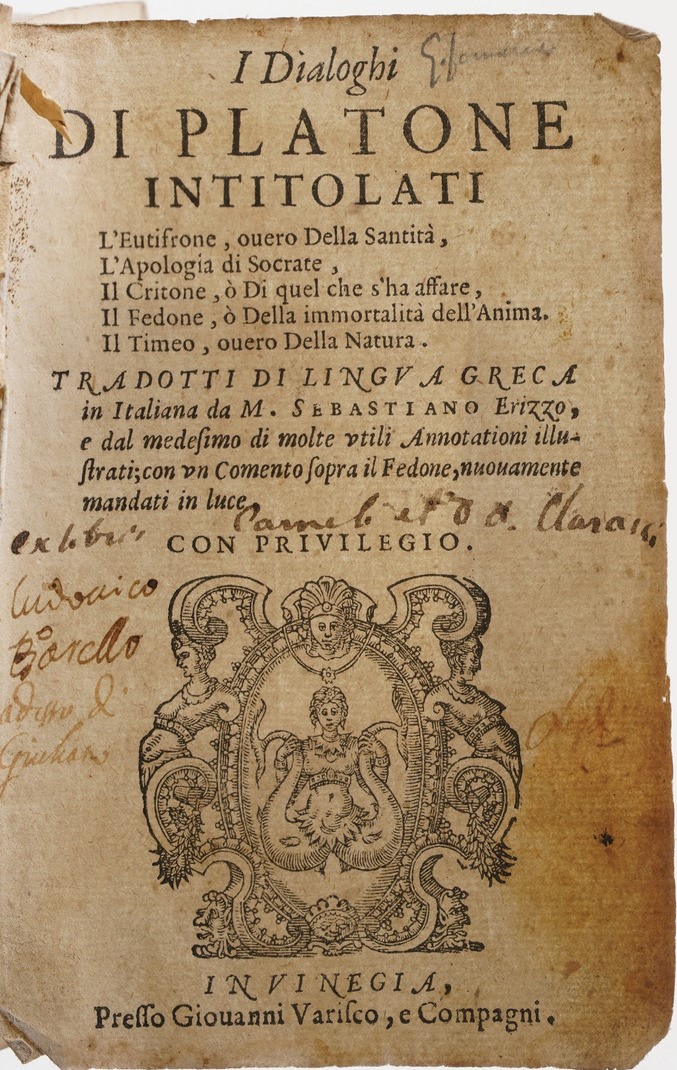 I Dialoghi
DI PLATONE
INTITOLATI
L'Eutifrone, ouero Della Santità,
L'Apologia di Socrate,
Il Critone, ò Di quel che s'ha affare,
Il Fedone, ò Della immortalità dell'Anima.
Il Timeo, ouero Della Natura.
TRADOTTI DI LINGVA GRECA
in Italiana da M. SEBASTIANO Erizzo,
e dal medeſimo di molte vtili Annotationi illu-
ſtrati; con vn Comento ſopra il Fedone, nuouamente
mandati in luce
ex libris
CON PRIVILEGIO.
Ludouico
Borello
IN VINEGIA,
Preſſo Giouanni Variſco, e Compagni.